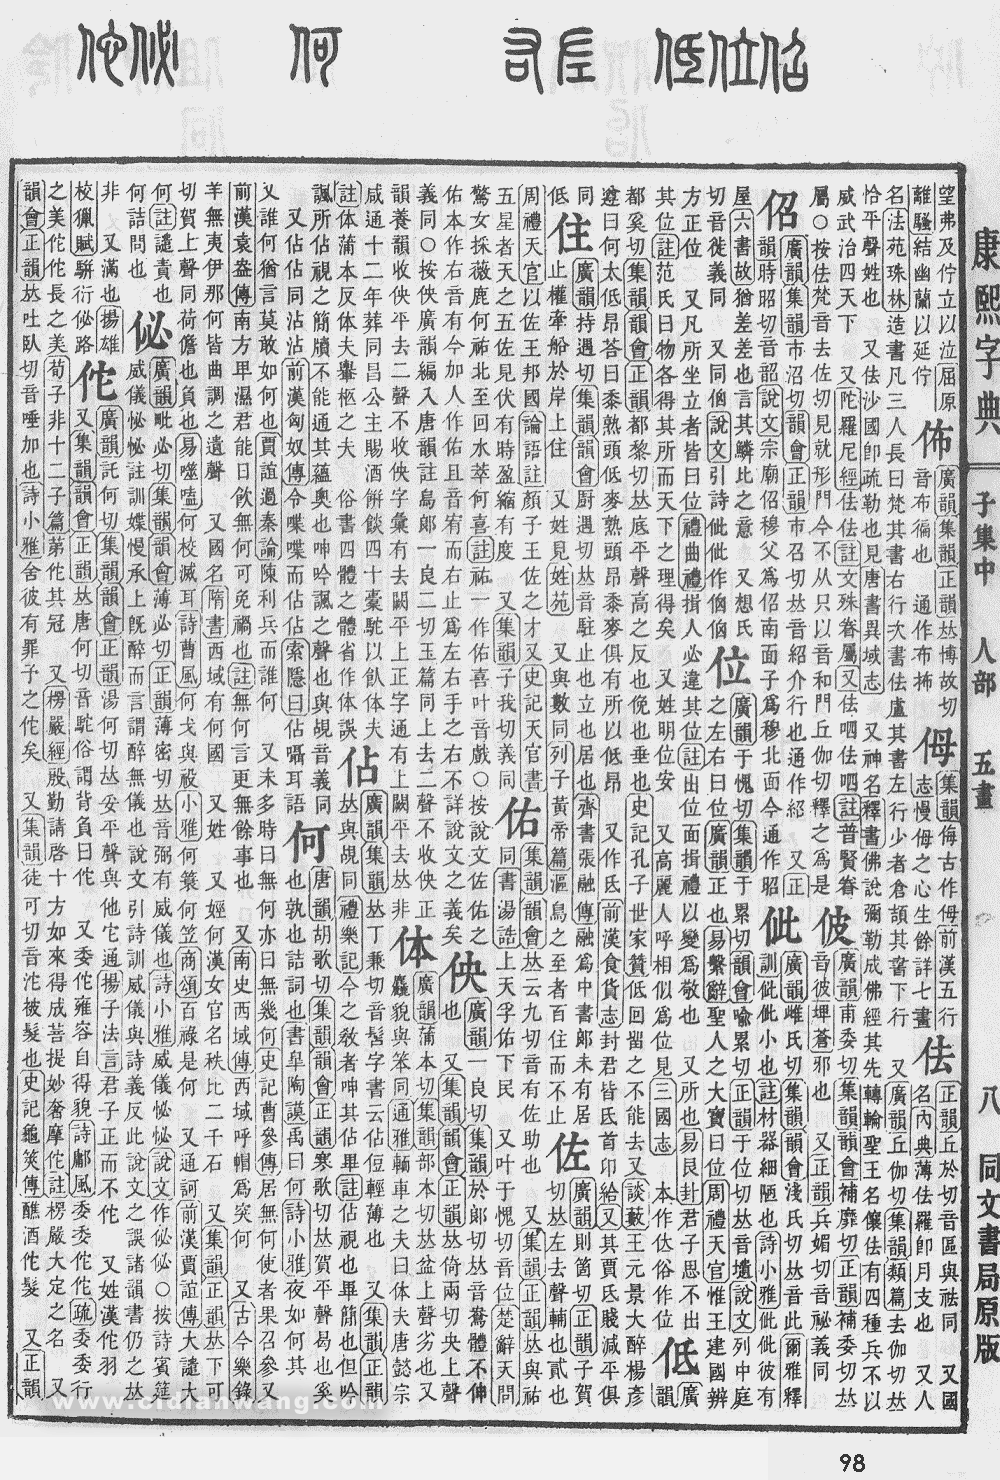 康熙字典 子集中 人部 五畫 八 同文書局原版
望弗及佇立以泣屈原
離騷結幽蘭以延佇
佈
廣韻集韻正韻𠀤博故切
音布徧也 通作布抪
㑄
集韻侮古作㑄前漢五行
志慢㑄之心生餘詳七畫
佉
正韻丘於切音區與祛同 又國
名內典薄佉羅卽月支也 又人
名法苑珠林造書凡三人長曰梵其書右行次書佉盧其書左行少者倉頡其書下行 又廣韻丘伽切集韻類篇去伽切𠀤
恰平聲姓也 又佉沙國卽疏勒也見唐書異域志 又神名釋書佛說彌勒成佛經其先轉輪聖王名儴佉有四種兵不以
威武治四天下 又陀羅尼經佉佉註文殊眷屬又佉呬佉呬註普賢眷
屬○按佉梵音去佐切見就形門今不从只以音和門丘伽切釋之爲是
佊
廣韻甫委切集韻韻會補靡切正韻補委切𠀤
音彼埤蒼邪也 又正韻兵媚切音祕義同
佋
廣韻集韻市沼切韻會正韻市召切𠀤音紹介行也通作紹 又正
韻時昭切音韶說文宗廟佋穆父爲佋南面子爲穆北面今通作昭
佌
廣韻雌氏切集韻韻會淺氏切𠀤音此爾雅釋
訓佌佌小也註材器細陋也詩小雅佌佌彼有
屋六書故猶差差也言其鱗比之意 又想氏
切音徙義同 又同伵說文引詩佌佌作伵伵
位
廣韻于愧切集韻于累切韻會喻累切正韻于位切𠀤音壝說文列中庭
之左右曰位廣韻正也易繫辭聖人之大寶曰位周禮天官惟王建國辨
方正位 又凡所坐立者皆曰位禮曲禮揖人必違其位註出位而揖禮以變爲敬也 又所也易艮封君子思不出
其位註范氏曰物各得其所而天下之理得矣 又姓明位安 又高麗人呼相似爲位見三國志 本作㕸俗作位
低
廣
韻
都奚切集韻韻會正韻都黎切𠀤底平聲高之反也俛也垂也史記孔子世家贊低回留之不能去又談藪王元景大醉楊彥
遵曰何太低昂答曰黍熟頭低麥熟頭昂黍麥俱有所以低昂 又作氐前漢食貨志封君皆氐首卬給又其賈氐賤減平俱
同
低
住
廣韻持遇切集韻韻會廚遇切𠀤音駐止也立也居也齊書張融傳融爲中書郞未有居
止權牽船於岸上住 又姓見姓苑 又與數同列子黃帝篇漚鳥之至者百住而不止
佐
廣韻則箇切正韻子賀
切𠀤左去聲輔也貳也
周禮天官以佐王邦國論語註顏子王佐之才又史記天官書
五星者天之五佐見伏有時盈縮有度 又集韻子我切義同
佑
集韻韻會𠀤云九切音有佐助也 又集韻正韻𠀤與祐
同書湯誥上天孚佑下民 又叶于愧切音位楚辭天問
驚女採薇鹿何祐北至回水萃何喜註祐一作佑喜叶音戲○按說文佐佑之
佑本作右音有今加人作佑且音宥而右止爲左右手之右不詳說文之義矣
佒
廣韻一良切集韻於郞切𠀤音鴦體不伸
也 又集韻韻會正韻𠀤倚兩切央上聲
義同○按佒廣韻編入唐韻註烏郞一良二切玉篇同上去二聲不收佒正
韻養韻收佒平去二聲不收佒字彙有去闕平上正字通有上闕平去𠀤非
体
廣韻蒲本切集韻部本切𠀤盆上聲劣也又
麤貌與笨同通雅輀車之夫曰体夫唐懿宗
咸通十二年葬同昌公主賜酒餠餤四十橐駝以飮体夫
註体蒲本反体夫轝柩之夫 俗書四體之體省作体誤
佔
廣韻集韻𠀤丁兼切音髻字書云佔侸輕薄也 又集韻正韻
𠀤與覘同禮樂記今之敎者呻其佔畢註佔視也畢簡也但吟
諷所佔視之簡牘不能通其蘊奧也呻吟諷之聲也與覘音義同
又佔佔同沾沾前漢匈奴傳令喋喋而佔佔索隱曰佔囁耳語
何
唐韻胡歌切集韻韻會正韻寒歌切𠀤賀平聲曷也奚
也孰也詰詞也書皐陶謨禹曰何詩小雅夜如何其
又誰何猶言莫敢如何也賈誼過秦論陳利兵而誰何 又未多時曰無何亦曰無幾何史記曹參傳居無何使者果召參又
前漢袁盎傳南方卑濕君能日飮無何可免禍也註無何言更無餘事也 又南史西域傳西域呼帽爲突何 又古今樂錄
羊無夷伊那何皆曲調之遺聲 又國名隋書西域有何國 又姓 又娙何漢女官名秩比二千石 又集韻正韻𠀤下可
切賀上聲同荷儋也負也易噬嗑何校滅耳詩曹風何戈與祋小雅何簑何笠商頌百祿是何 又通訶前漢賈誼傳大譴大
何註譴責也
何詰問也
佖
廣韻毗必切集韻韻會薄必切正韻薄密切𠀤音弼有威儀也詩小雅威儀怭怭說文作佖佖○按詩賓筵
威儀怭怭註訓媟慢承上旣醉而言謂醉無儀也說文引詩訓威儀與詩義反此說文之誤諸韻書仍之𠀤
非 又滿也揚雄
校獵賦騈衍佖路
佗
廣韻託何切集韻韻會正韻湯何切𠀤妥平聲與他它通揚子法言君子正而不佗 又姓漢佗羽
又集韻韻會正韻𠀤唐何切音駝俗謂背負曰佗 又委佗雍容自得貌詩鄘風委委佗佗疏委委行
之美佗佗長之美荀子非十二子篇第佗其冠 又楞嚴經殷勤請啓十方如來得成菩提妙奢摩佗註楞嚴大定之名 又
韻會正韻𠀤吐臥切音唾加也詩小雅舍彼有罪予之佗矣 又集韻徒可切音沱被髮也史記龜筴傳醮酒佗髮 又正韻
www.cidianwang.com
98